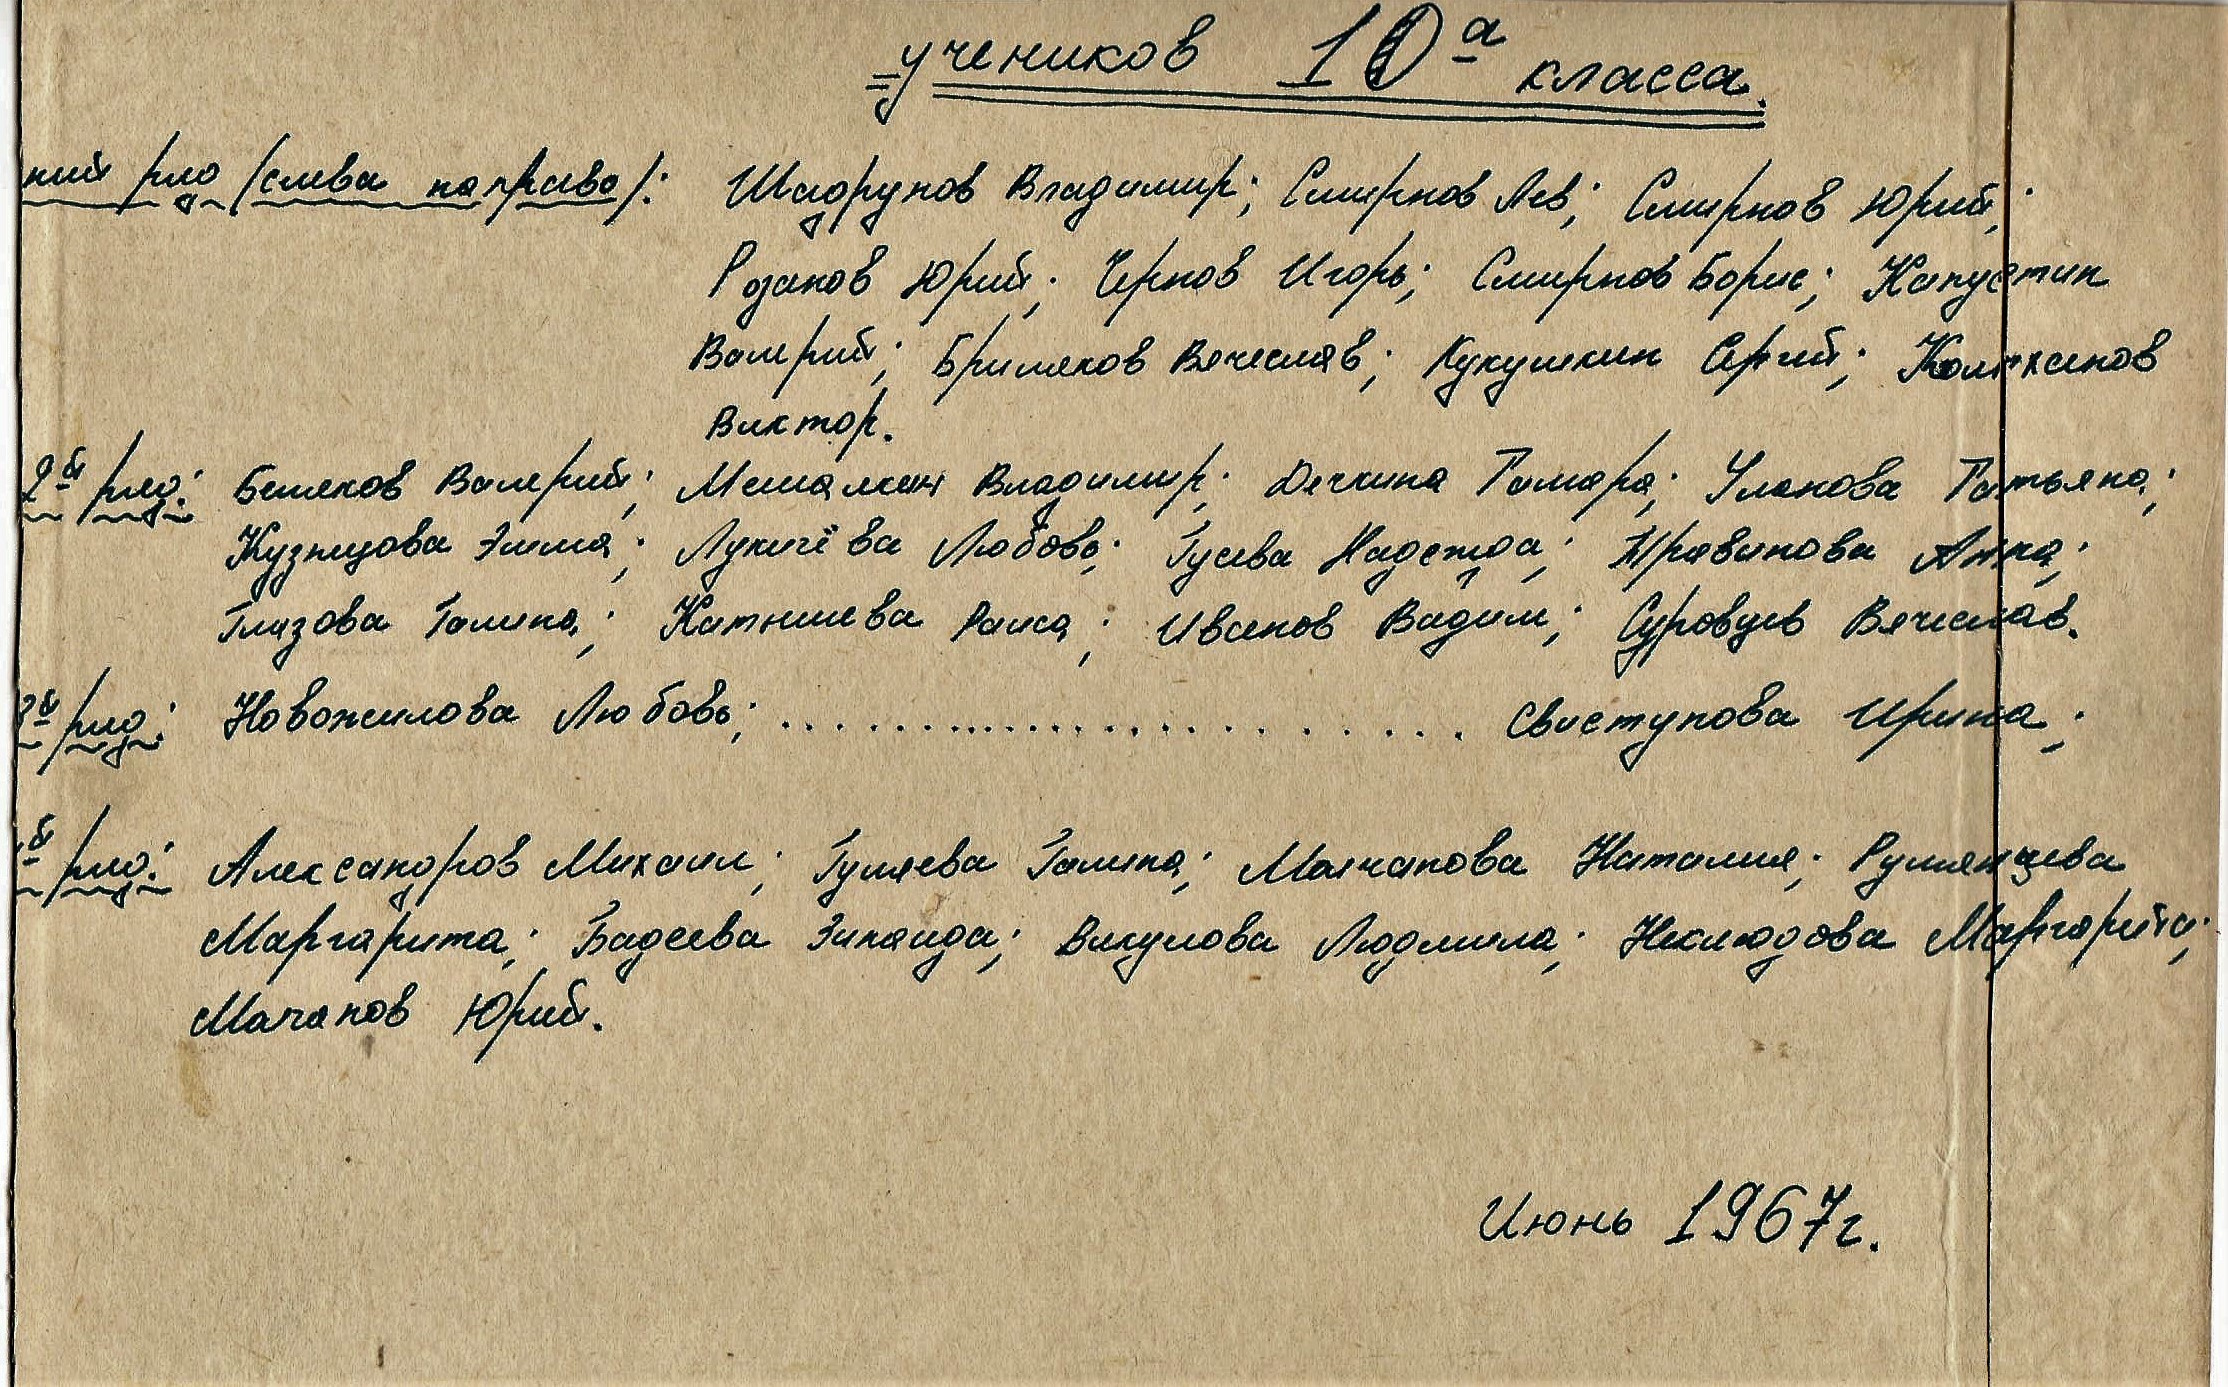 учеников 10а класса.
ний ряд /слева направо/: Шадрунов Владимир; Смирнов Лев; Смирнов Юрий;
Розанов Юрий; Чернов Игорь; Смирнов Борис; Капустин
Валерий; Бриляков Вячеслав; Кукушкин Сергий; Колоксанов
Виктор.
2й ряд: Беляков Валерий; Мешалкин Владимир; Дечкина Тамара; Уланова Татьяна;
Кузнецова Эмма; Лукичёва Любовь; Гусева Надежда; Журавинова Анна;
Глазова Галина; Катышева Раиса; Иванов Вадим; Суровцев Вячеслав.
3й ряд: Новожилова Любовь; .......................... Свистунова Ирина;
й ряд: Александров Михаил; Гуляева Галина; Молчанова Наталия; Румянцева
Маргарита; Бадеева Зинаида; Викулова Людмила; Неклюдова Маргарита;
Мачанов Юрий.
Июнь 1967г.